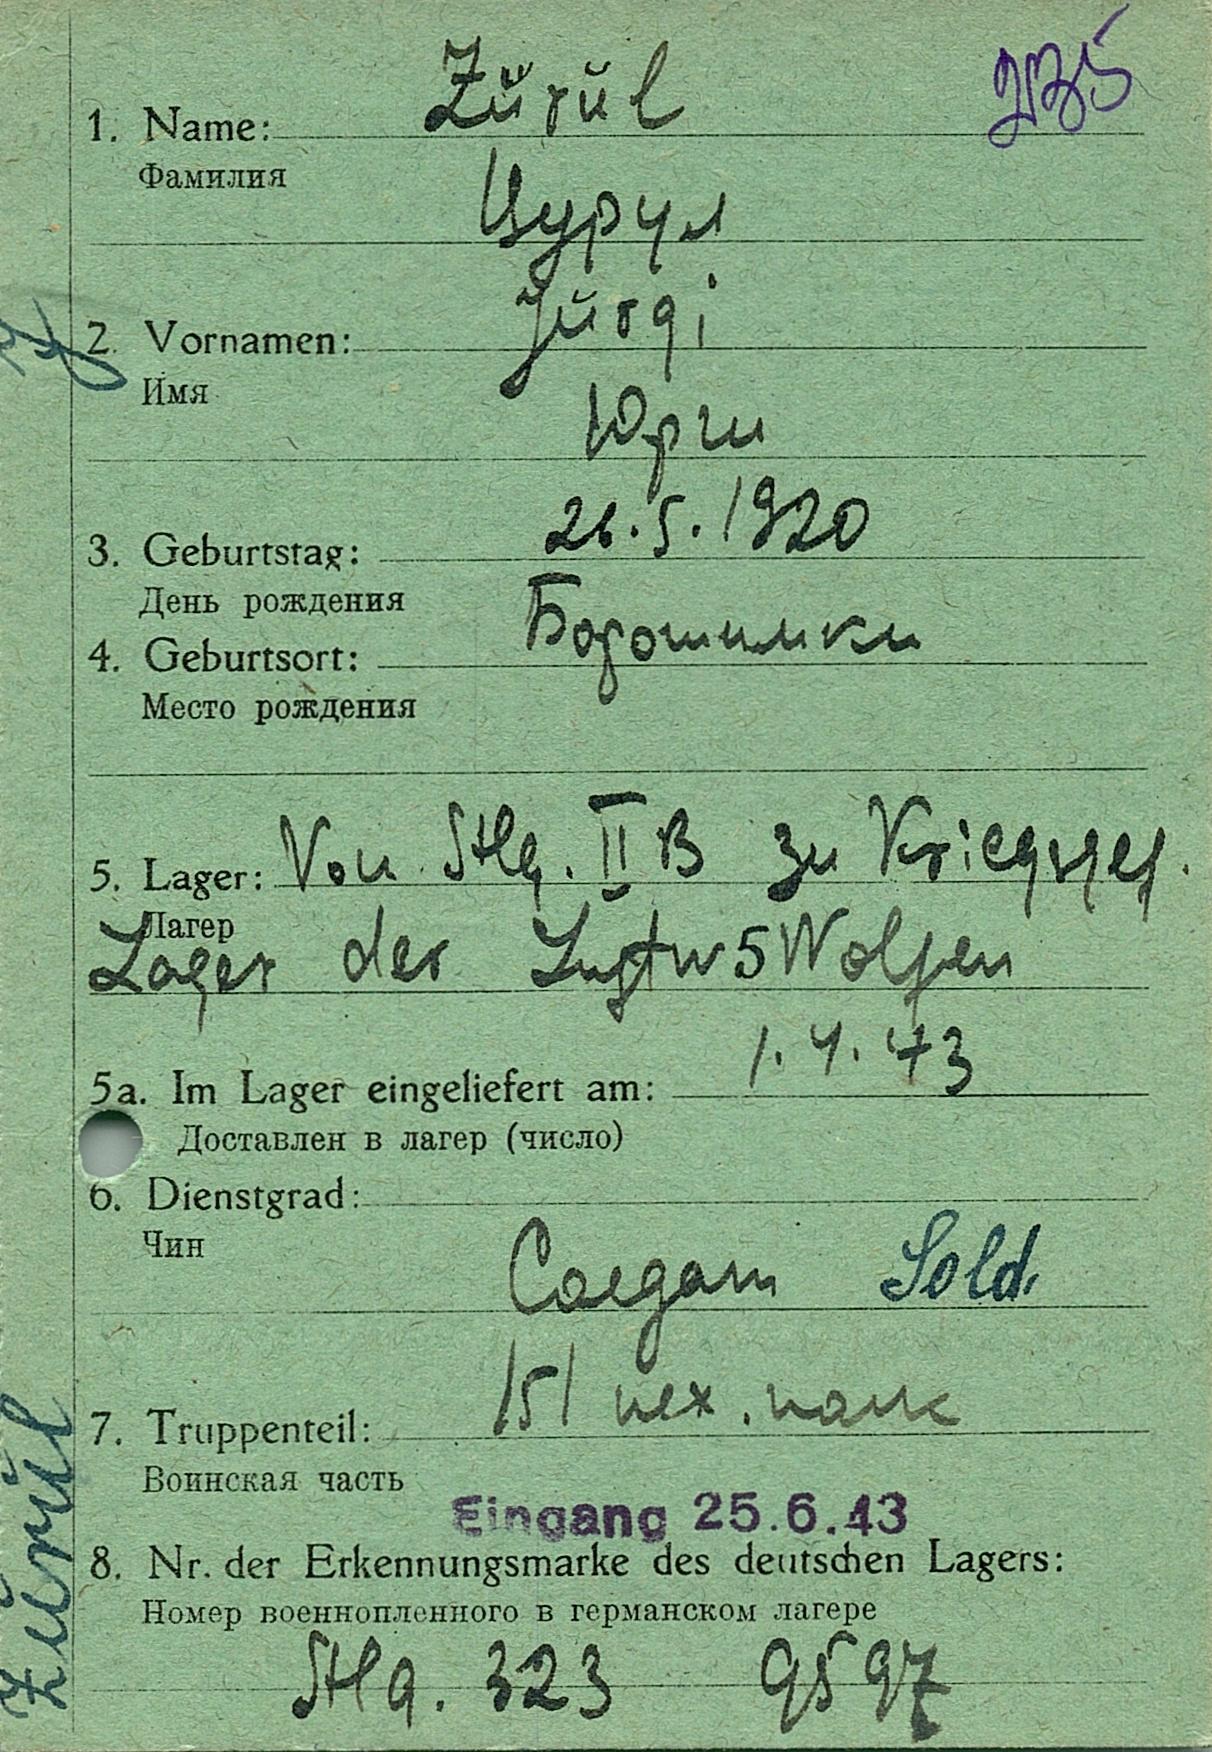 235
Zŭrŭl
1. Name:
Фамилия
Цурул
Jŭrgi
2. Vornamen:
Имя
Юрги
3. Geburtstag: 26.5.1920
День рождения
4. Geburtsort:
Место рождения
5. Lager: Von Stlg. II B zu Kriegsgef.
Лагер
Lager der Luftw 5 Wolfen
5a. Im Lager eingeliefert am: 1.4.43
Доставлен в лагер (число)
6. Dienstgrad:
Чин
Солдат Sold.
7. Truppenteil: 151 пех. полк
Воинская часть
Eingang 25.6.43
8. Nr. der Erkennungsmarke des deutschen Lagers:
Номер военнопленного в германском лагере
Stlg. 323 9597
Zŭrŭl